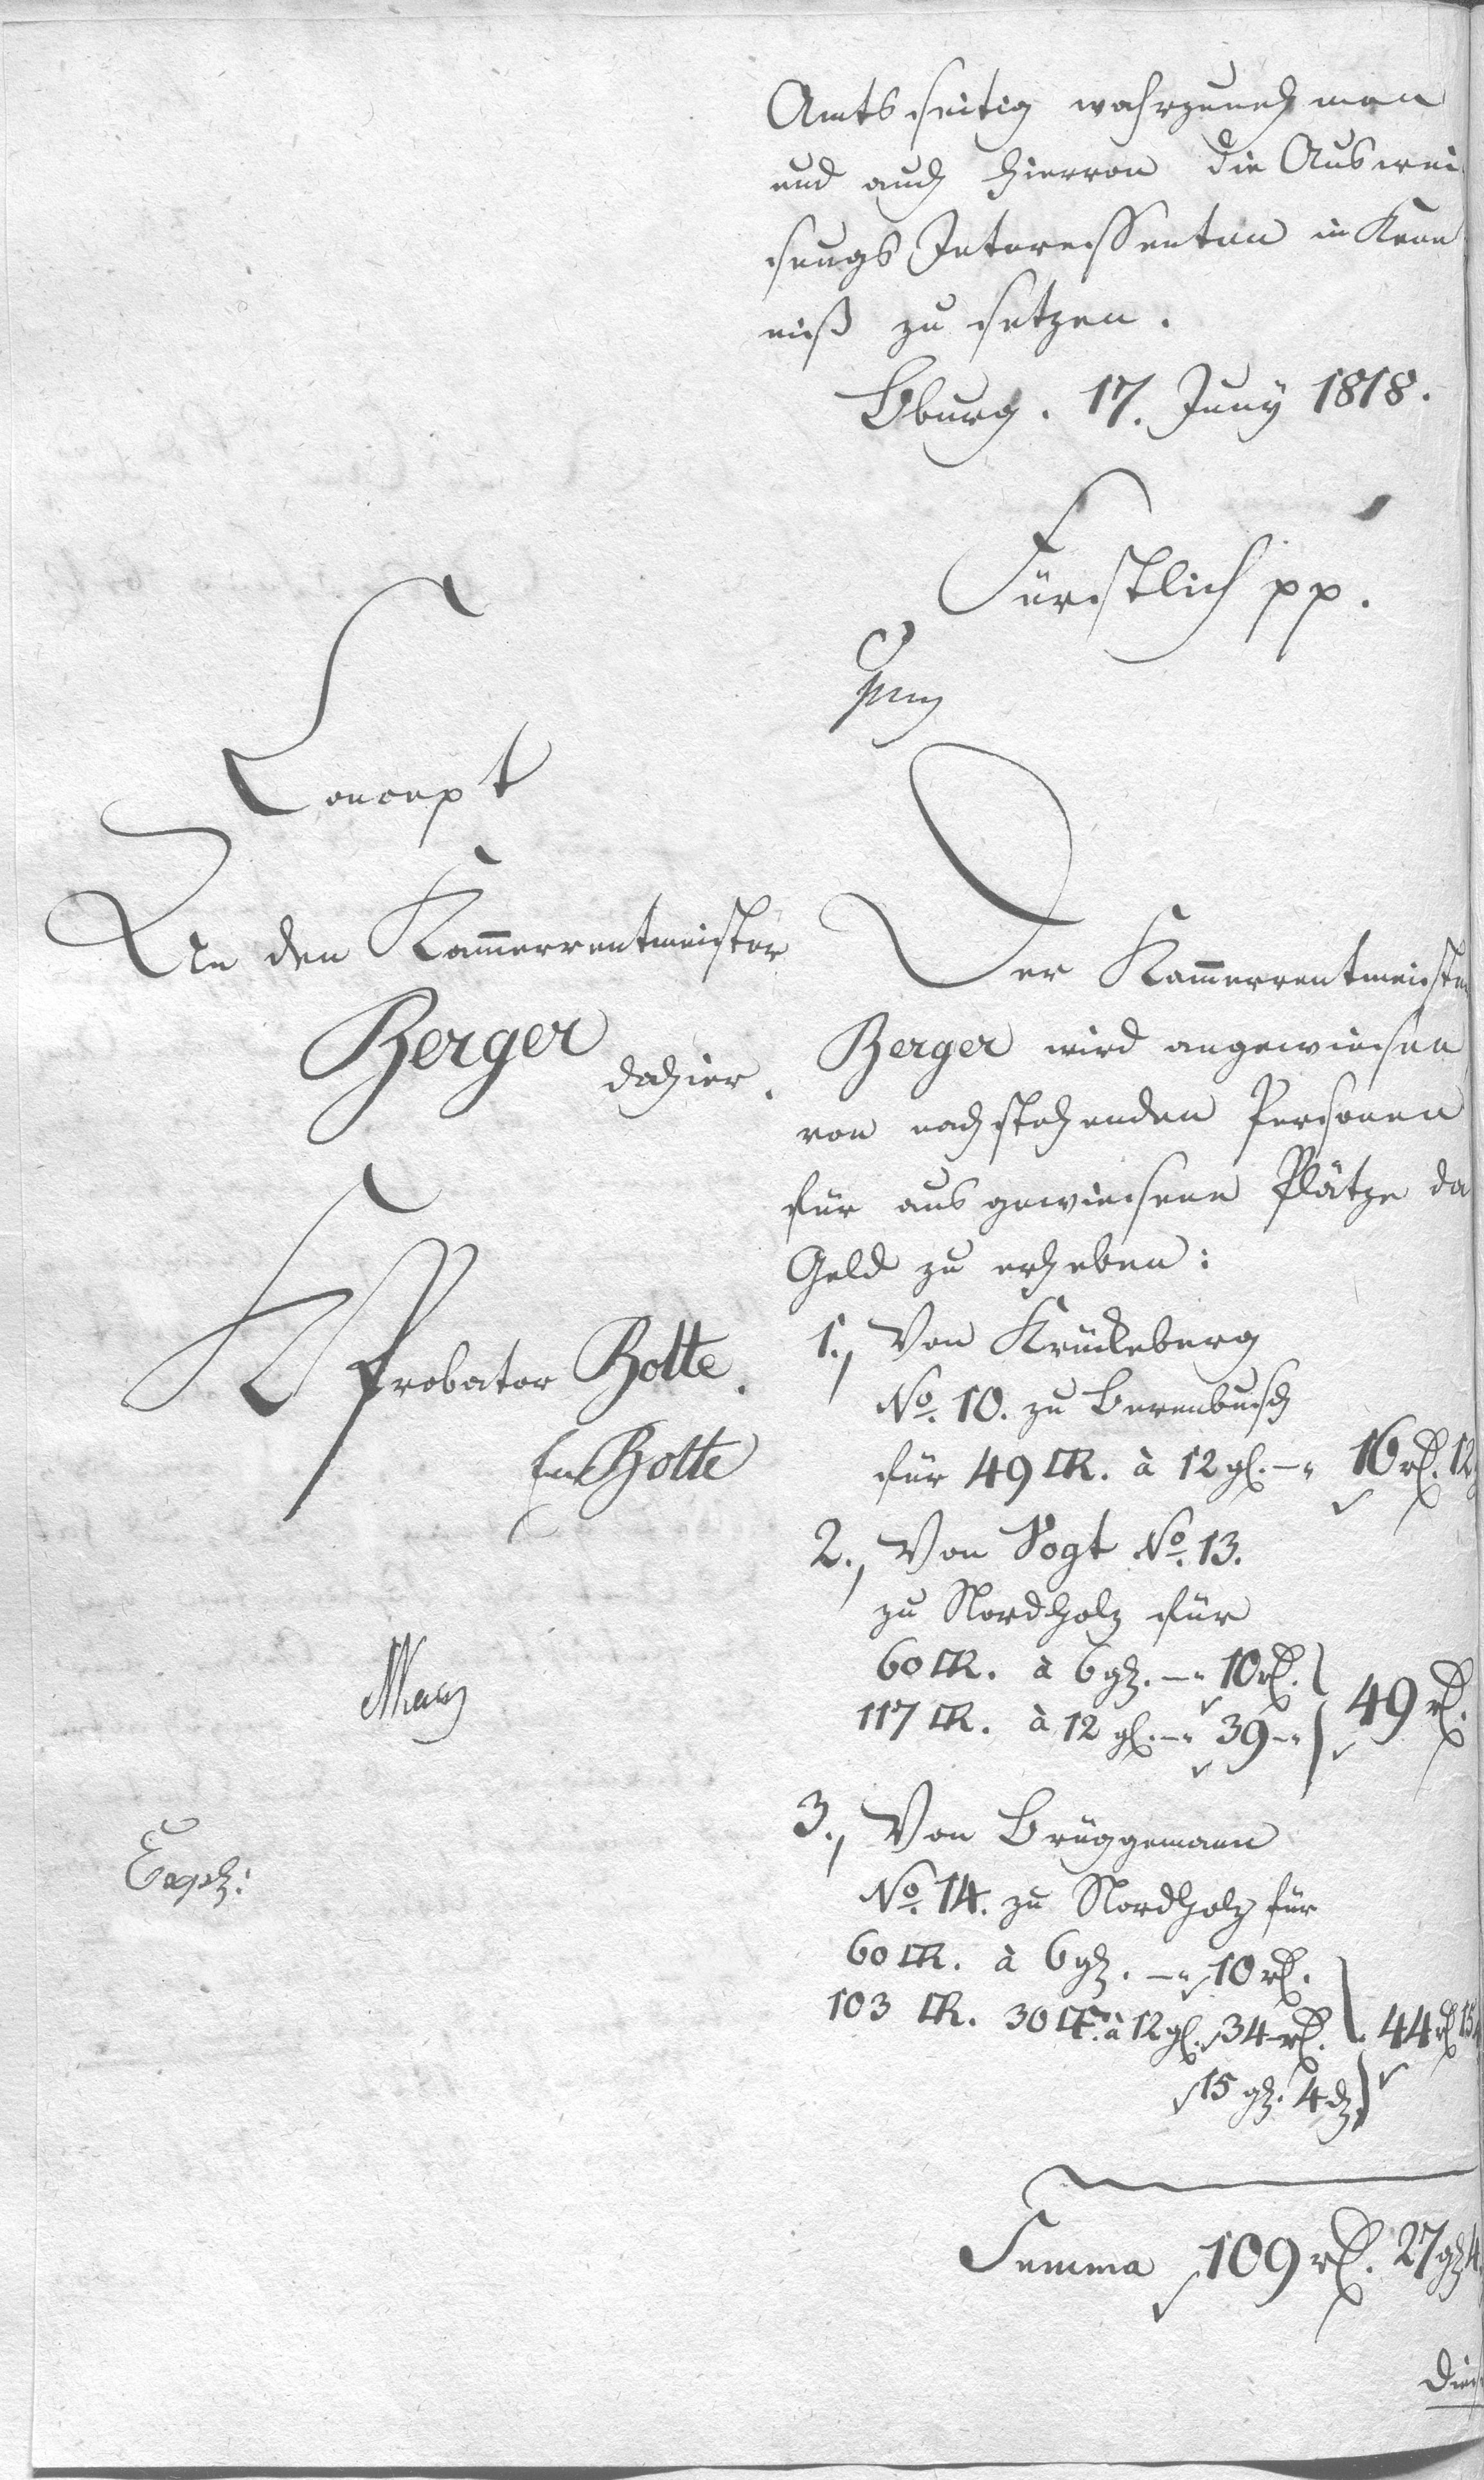 Amtsseitig wahrzunehmen
und auch hiervon die Auswei
sungs Interessenten in Kenn
niß zu setzen.
Bburg. 17. Juny 1818.
Fürstlich pp.
Concept
An den Kammerrentmeister
Berger
dahier.
Probator Bolte.
Bolte
Expd:
Der Kammerrentmeister
Berger wird angewiesen
von nachstehenden Personen
für ausgewiesene Plätze da
Geld zu erheben:
1., Von Krückeberg
No. 10. zu Berenbusch
für 49 □R. à 12 gl. — " 16 rl. 12
2., Von Vogt No. 13.
zu Nordholz für
60 □R. à 6 gl. — " 10 rl.
117 □R. à 12 gl. — " 39 — " 49 rl.
3., Von Brüggemann
No. 14. zu Nordholz für
60 □R. à 6 gl. — " 10 rl.
103 □R. 30 □F. à 12 gl. 34 rl. 44 rl 15
15 gl. 4 d.
Summa 109 rl. 27 gl 4
Dies